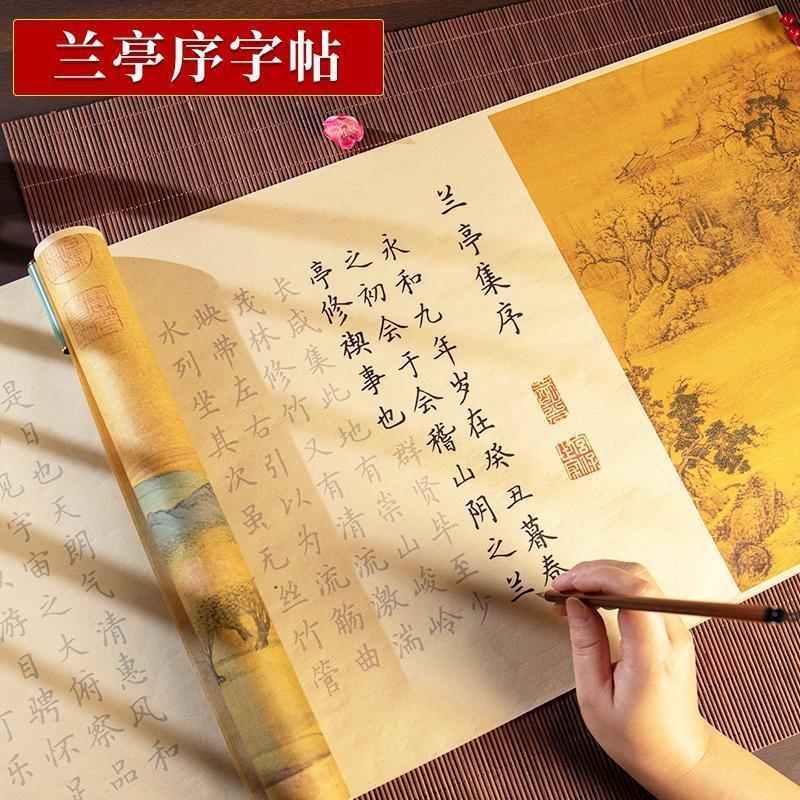 兰亭序字帖
兰亭集序
永和九年岁在癸丑暮春
之初会于会稽山阴之兰
亭修禊事也群贤毕至少
长咸集此地有崇山峻岭
茂林修竹又有清流激湍
映带左右引以为流觞曲
水列坐其次虽无丝竹管
是日也天朗气清惠风和
宇宙之大俯察品
游目骋怀足
乐